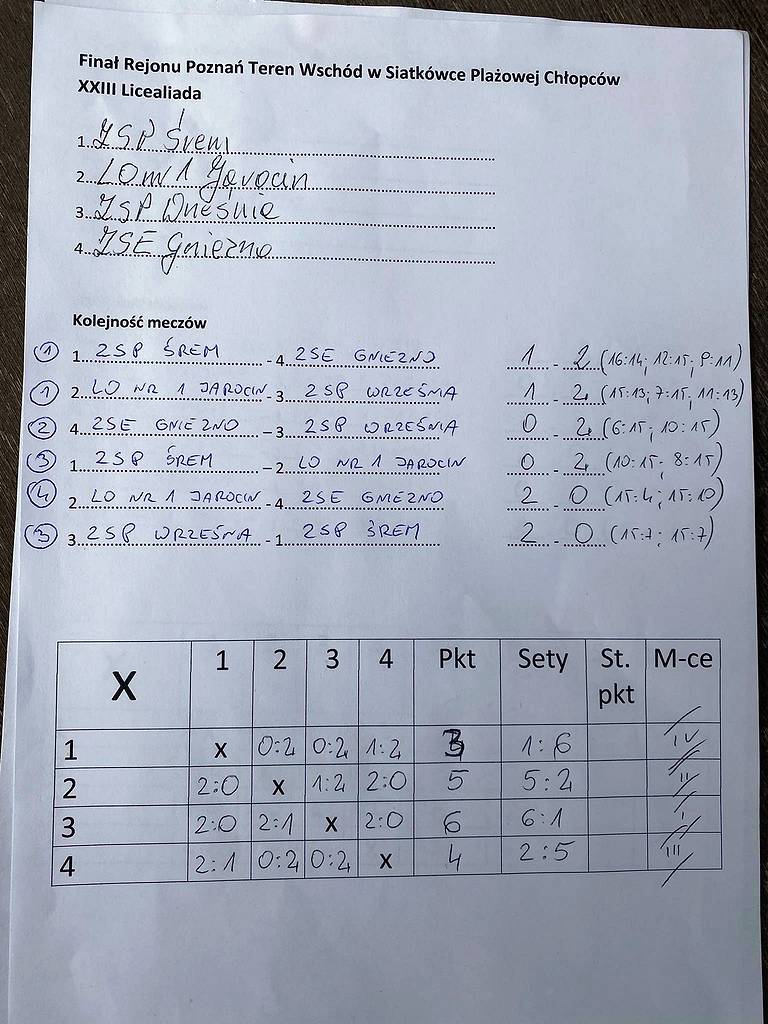 Finał Rejonu Poznań Teren Wschód w Siatkówce Plażowej Chłopców
XXIII Licealiada
1. ZSP Śrem
2. LO nr 1 Jarocin
3. ZSP Września
4. ZSE Gniezno
Kolejność meczów
1 1. ZSP ŚREM - 4 ZSE GNIEZNO 1 - 2 (16:14; 12:15; 9:11)
1 2. LO NR 1 JAROCIN - 3 ZSP WRZEŚNIA 1 - 2 (15:13; 7:15; 11:13)
2 4. ZSE GNIEZNO – 3 ZSP WRZEŚNIA 0 - 2 (6:15; 10:15)
3 1. ZSP ŚREM – 2 LO NR 1 JAROCIN 0 - 2 (10:15; 8:15)
4 2 LO NR 1 JAROCIN - 4 ZSE GNIEZNO 2 - 0 (15:4; 15:10)
3 3. ZSP WRZEŚNIA - 1 ZSP ŚREM 2 - 0 (15:7; 15:7)
X 1 2 3 4 Pkt Sety St. pkt M-ce
1 x 0:2 0:2 1:2 3 1:6 IV
2 2:0 x 1:2 2:0 5 5:2 II
3 2:0 2:1 x 2:0 6 6:1 I
4 2:1 0:2 0:2 x 4 2:5 III